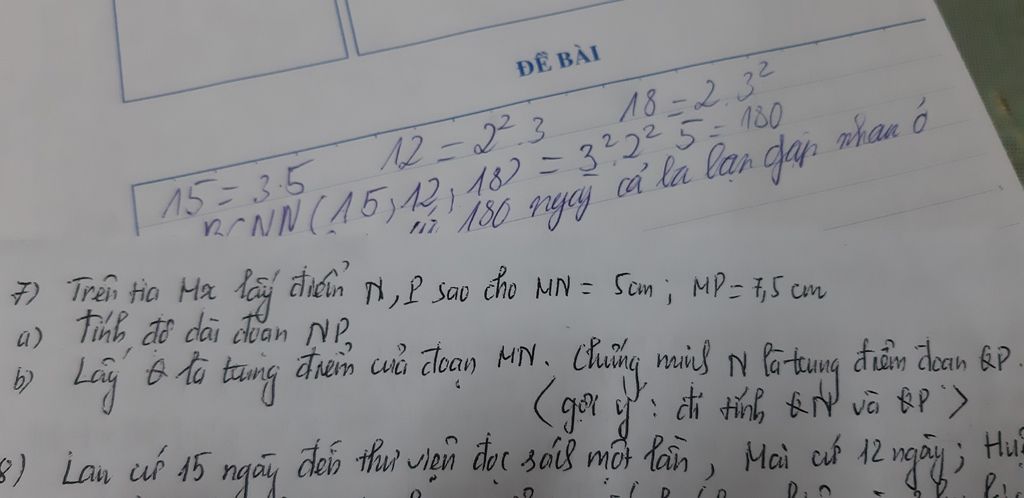 ĐỀ BÀI
15 = 3.5 12 = 2².3 18 = 2.3²
BCNN(15;12;18) = 3².2².5 = 180
180 ngày cả ba bạn gặp nhau ở
7) Trên tia Mx lấy điểm N, P sao cho MN = 5cm; MP = 7,5 cm
a) Tính độ dài đoạn NP
b) Lấy Q là trung điểm của đoạn MN. Chứng minh N là trung điểm đoạn QP.
(gợi ý: đi tính QN và QP)
8) Lan cứ 15 ngày đến thư viện đọc sách một lần, Mai cứ 12 ngày;